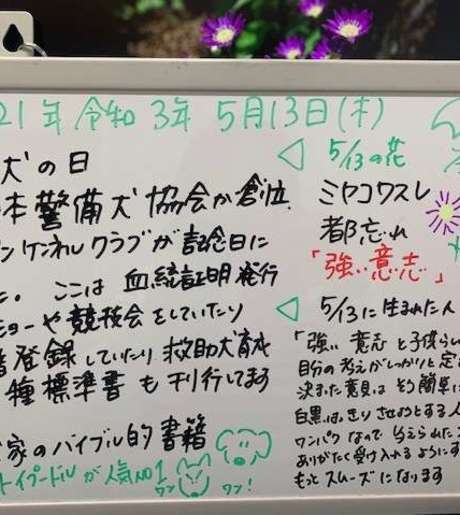 21年 令和3年 5月13日(木)
犬の日
本警備犬協会が創立
ンケネルクラブが記念日に
た。ここは血統証明発行
ショーや競技会をしていたり
登録していたり救助犬育成
種標準書も刊行してます
家のバイブル的書籍
トイプードルが人気NO1
ワン ワン!
5/13の花
ミヤコワスレ
都忘れ
「強い意志」
5/13に生まれた人
「強い意志と子供らし
自分の考えがしっかりと定ま
決まった意見はそう簡単に
白黒はっきりさせようとする人
ワンパクなので 与えられた
ありがたく受け入れるようにす
もっとスムーズになります